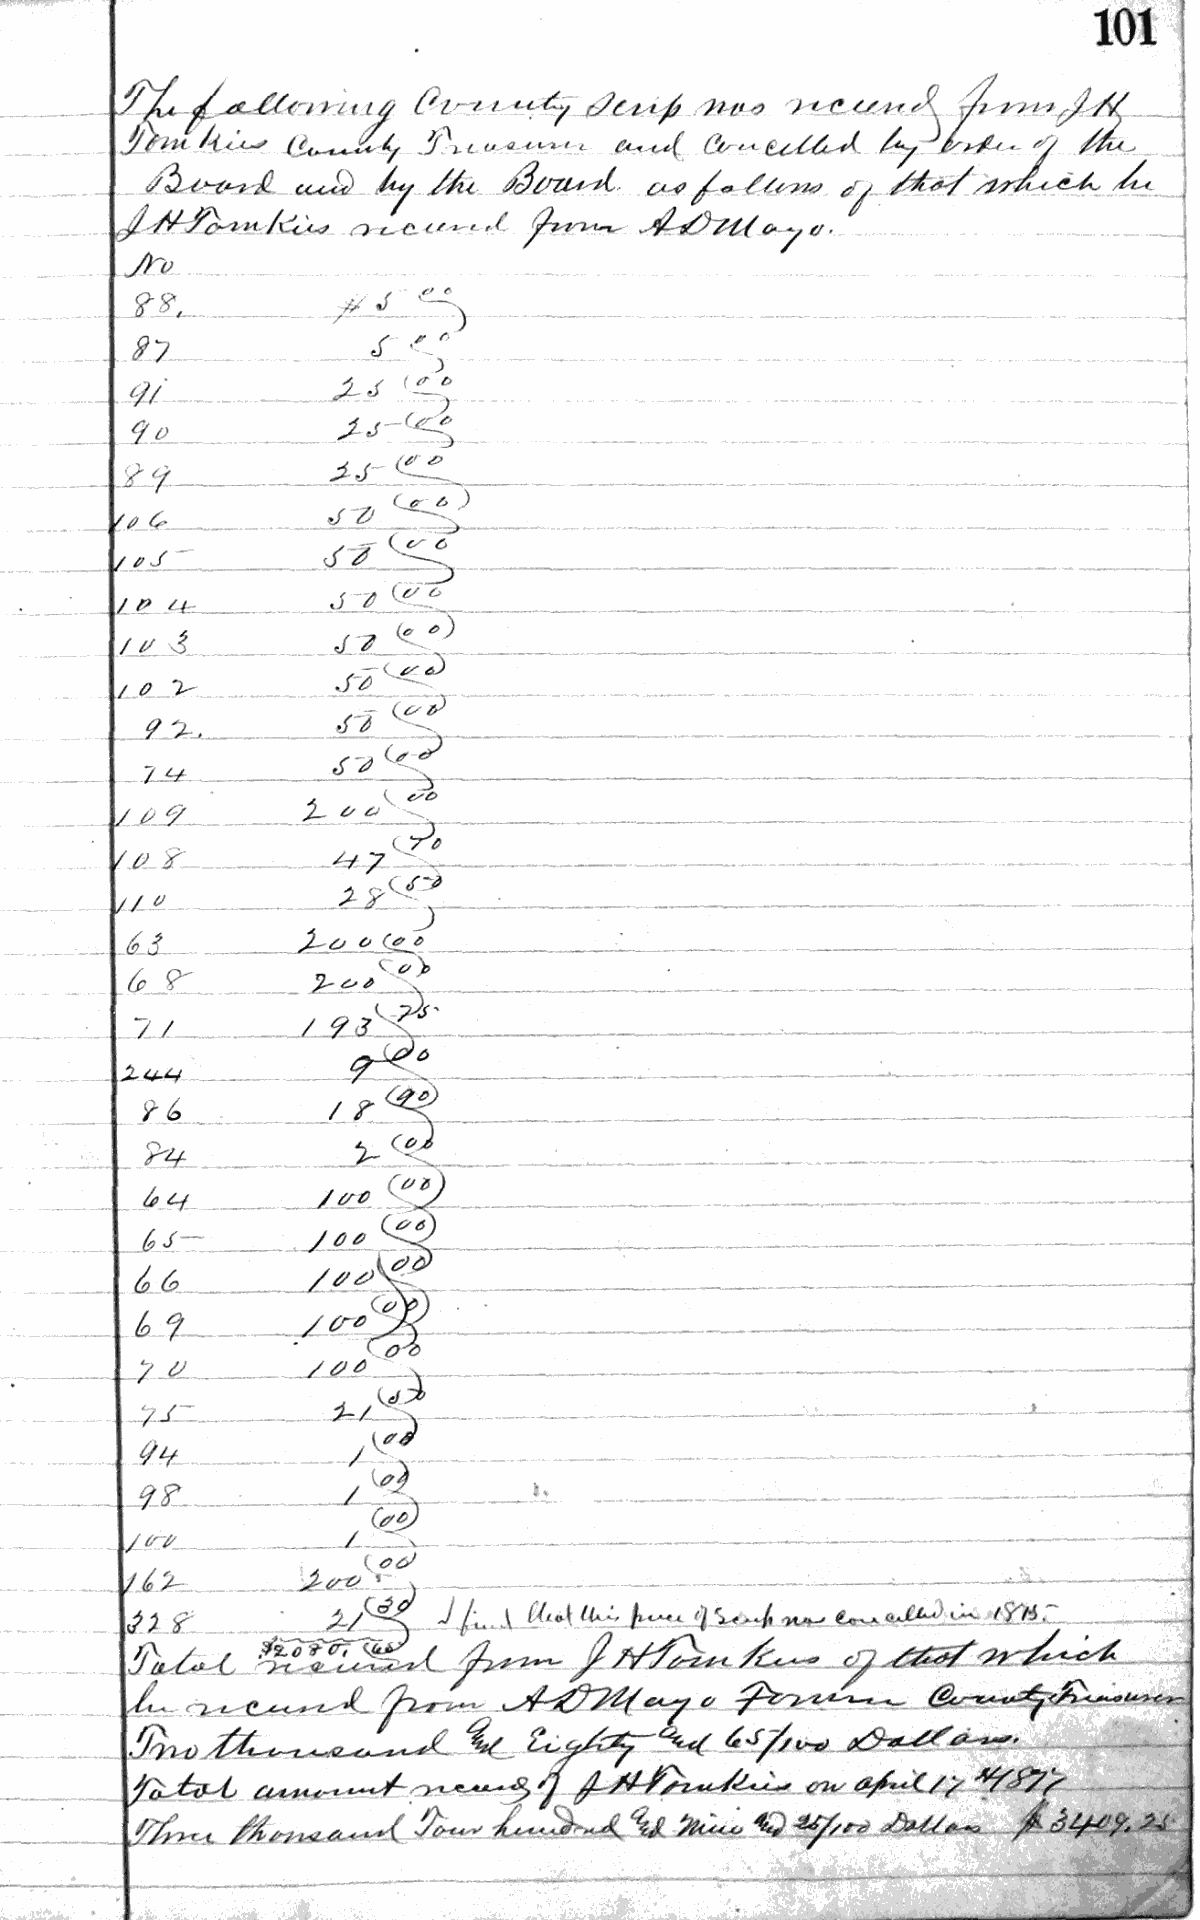 101
The following County Scrip was received from J H
Tomkies County Treasurer and Cancelled by order of the
Board and by the Board as follows of that which he
J H Tomkies received from A D Mayo.
No
88. $5 00
87 5 00
91 25 00
90 25 00
89 25 00
106 50 00
105 50 00
104 50 00
103 50 00
102 50 00
92. 50 00
74 50 00
109 200 00
108 47 70
110 28 50
63 200 00
68 200 00
71 193 75
244 9 00
86 18 90
84 2 00
64 100 00
65 100 00
66 100 00
69 100 00
70 100 00
75 21 50
94 1 00
98 1 00
100 1 00
162 200 00
328 21 30 I find that this piece of Scrip was cancelled in 1875.
$2080.65
Total received from J H Tomkies of that which
he received from A D Mayo Former County Treasurer
Two thousand and Eighty and 65/100 Dollars.
Total amount received of J H Tomkies on april 17 1877
Three thousand Four hundred and Nine and 25/100 Dollars $3409.25